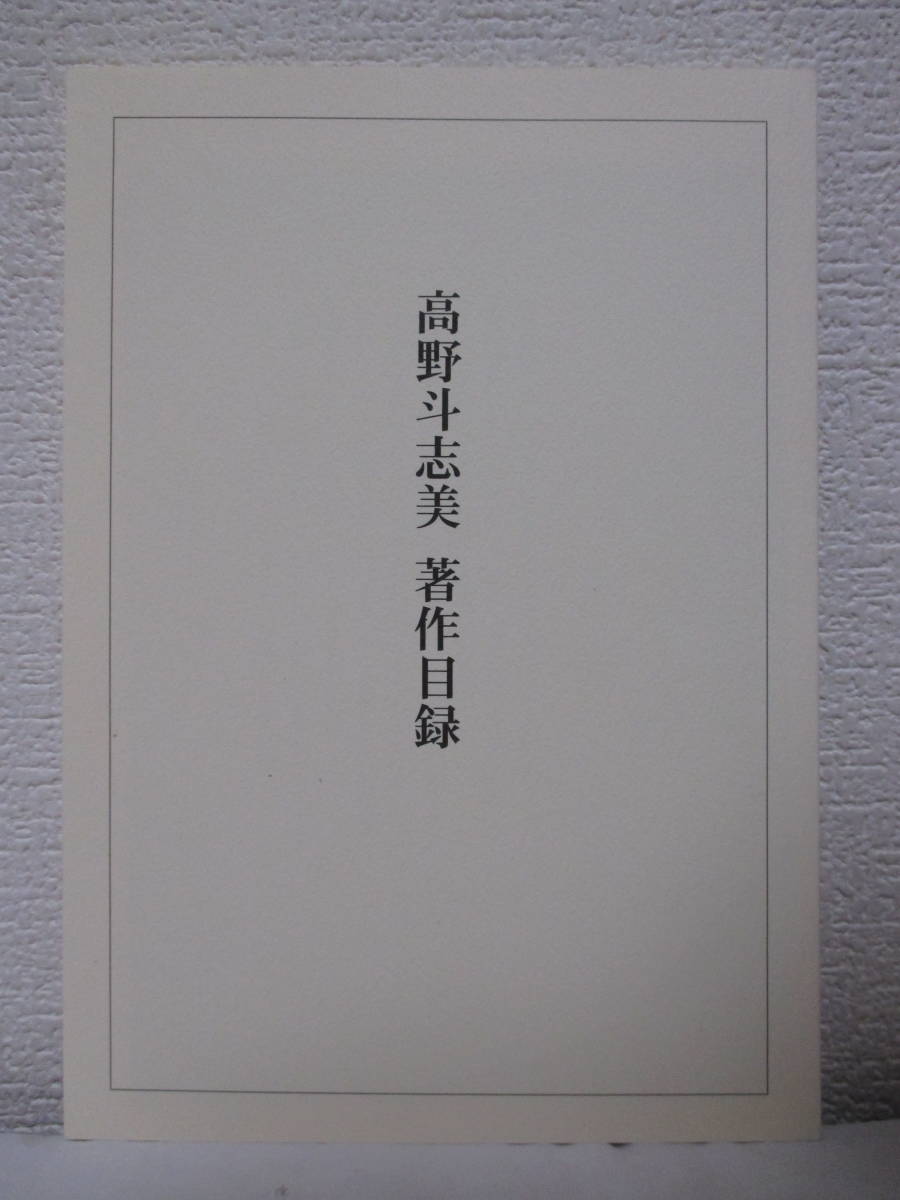 高野斗志美 著作目録